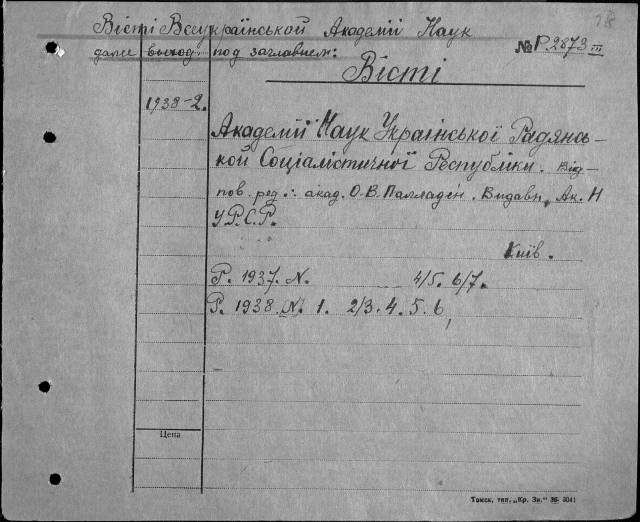 Вісті Всеукраїнської Академії Наук
далее выход. под заглавием:
№ P 2873 III
Вісті
1938-2.
Академії Наук Української Радянсь-
кой Соціалістичної Республіки. Від-
пов. ред.: акад. О.В. Палладін. Видавн. Ак. Н
У.Р.С.Р.
Київ.
Р. 1937. N. 4/5. 6/7.
Р. 1938. N. 1. 2/3. 4. 5. 6,
Цена
Томск, тип. „Кр. Зн." 36 3041